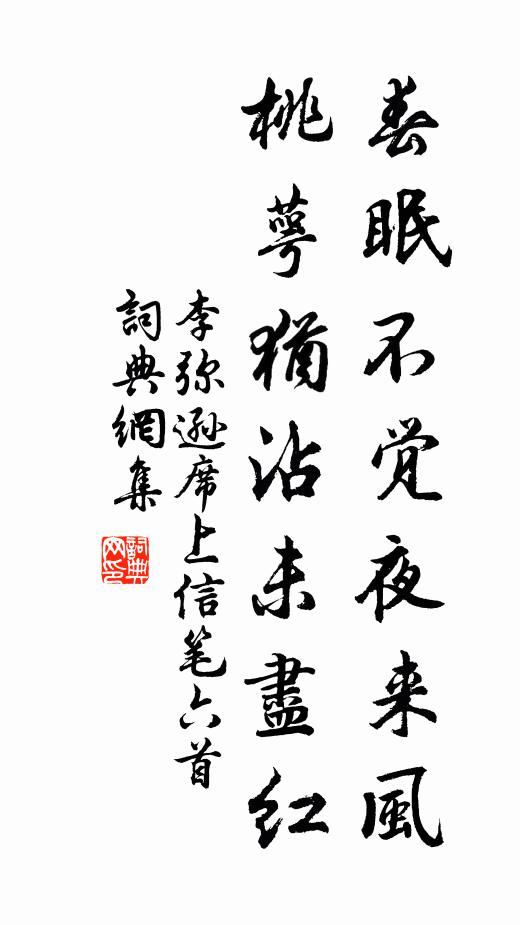 春眠不觉夜来風
桃萼猶沾未盡紅
李弥遜席上信笔六首
詞典網集
詞典网印